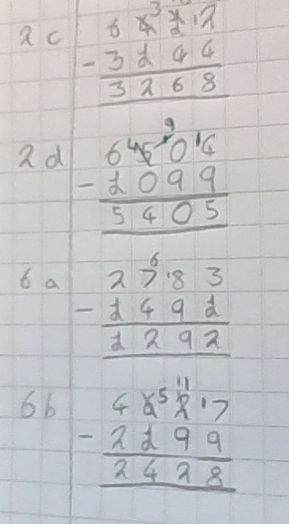 2c 6 4 1 2
- 3 1 4 4
3 2 6 8
9
2d 6 5 0 4
- 1 0 9 9
5 4 0 5
6
6a 2 7 8 3
- 1 4 9 1
1 2 9 2
5 11
6b 4 6 2 7
- 2 1 9 9
2 4 2 8